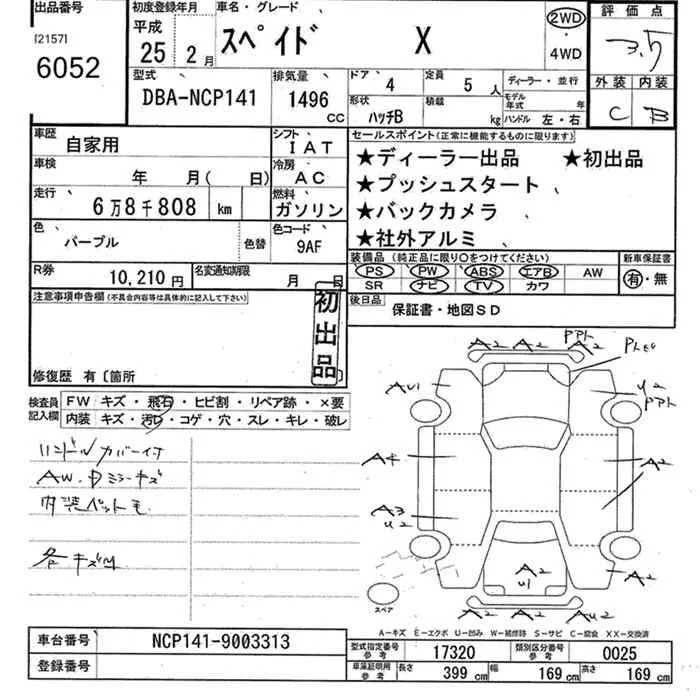 出品番号
[2157]
6052
初度登録年月
平成
25 2 月
車名・グレード
スペイド X
2WD
・
4WD
評価点
3.5
外装 内装
C B
型式
DBA-NCP141
排気量
1496
CC
ドア 4
定員 5 人
形状 ハッチB
積載 kg
ディーラー・並行
モデル年式 年
ハンドル 左・右
車歴 自家用
シフト IAT
車検 年 月( 日)
冷房 AC
走行 6万8千808 km
燃料 ガソリン
色 パープル
色替
色コード 9AF
R券 10,210円
名変通知期限 月 日
セールスポイント(正常に機能するものに限ります)
★ディーラー出品 ★初出品
★プッシュスタート
★バックカメラ
★社外アルミ
装備品(純正品に限り○をつけてください)
PS PW ABS エアB AW
SR ナビ TV カワ
新車保証書
有・無
後日品 保証書・地図SD
注意事項申告欄(不具合内容等は具体的に記入して下さい)
初出品
修復歴 有〔箇所
検査員記入欄
FW キズ・飛石・ヒビ割・リペア跡・×要
内装 キズ・汚レ・コゲ・穴・スレ・キレ・破レ
ハンドルカバー付
AW・Dミラーキズ
内装ペット毛
各キズ凹
A2 A2 A2
PPハト
AU1
U2
A4
A2
A3
U2
A2
U1
A2
A2 A2 AU2
スペア
A-キズ E-エクボ U-凹み W-補修跡 S-サビ C-腐食 XX-交換済
車台番号 NCP141-9003313
登録番号
型式指定番号 参考 17320
類別区分番号 参考 0025
車庫証明用 参考 長さ 399 cm 幅 169 cm 高さ 169 cm